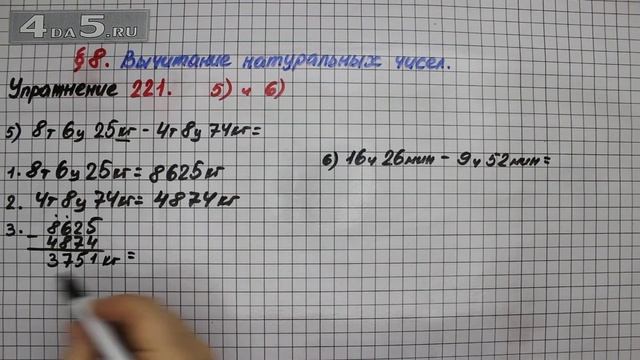 4DA5.RU
§8. Вычитание натуральных чисел.
Упражнение 221. 5) и 6)
5) 8т 6ц 25кг - 4т 8ц 74кг=
1. 8т 6ц 25кг= 8625кг
2. 4т 8ц 74кг= 4874кг
3. - 8625
4874
3751кг =
6) 16ч 26мин - 9ч 52мин=